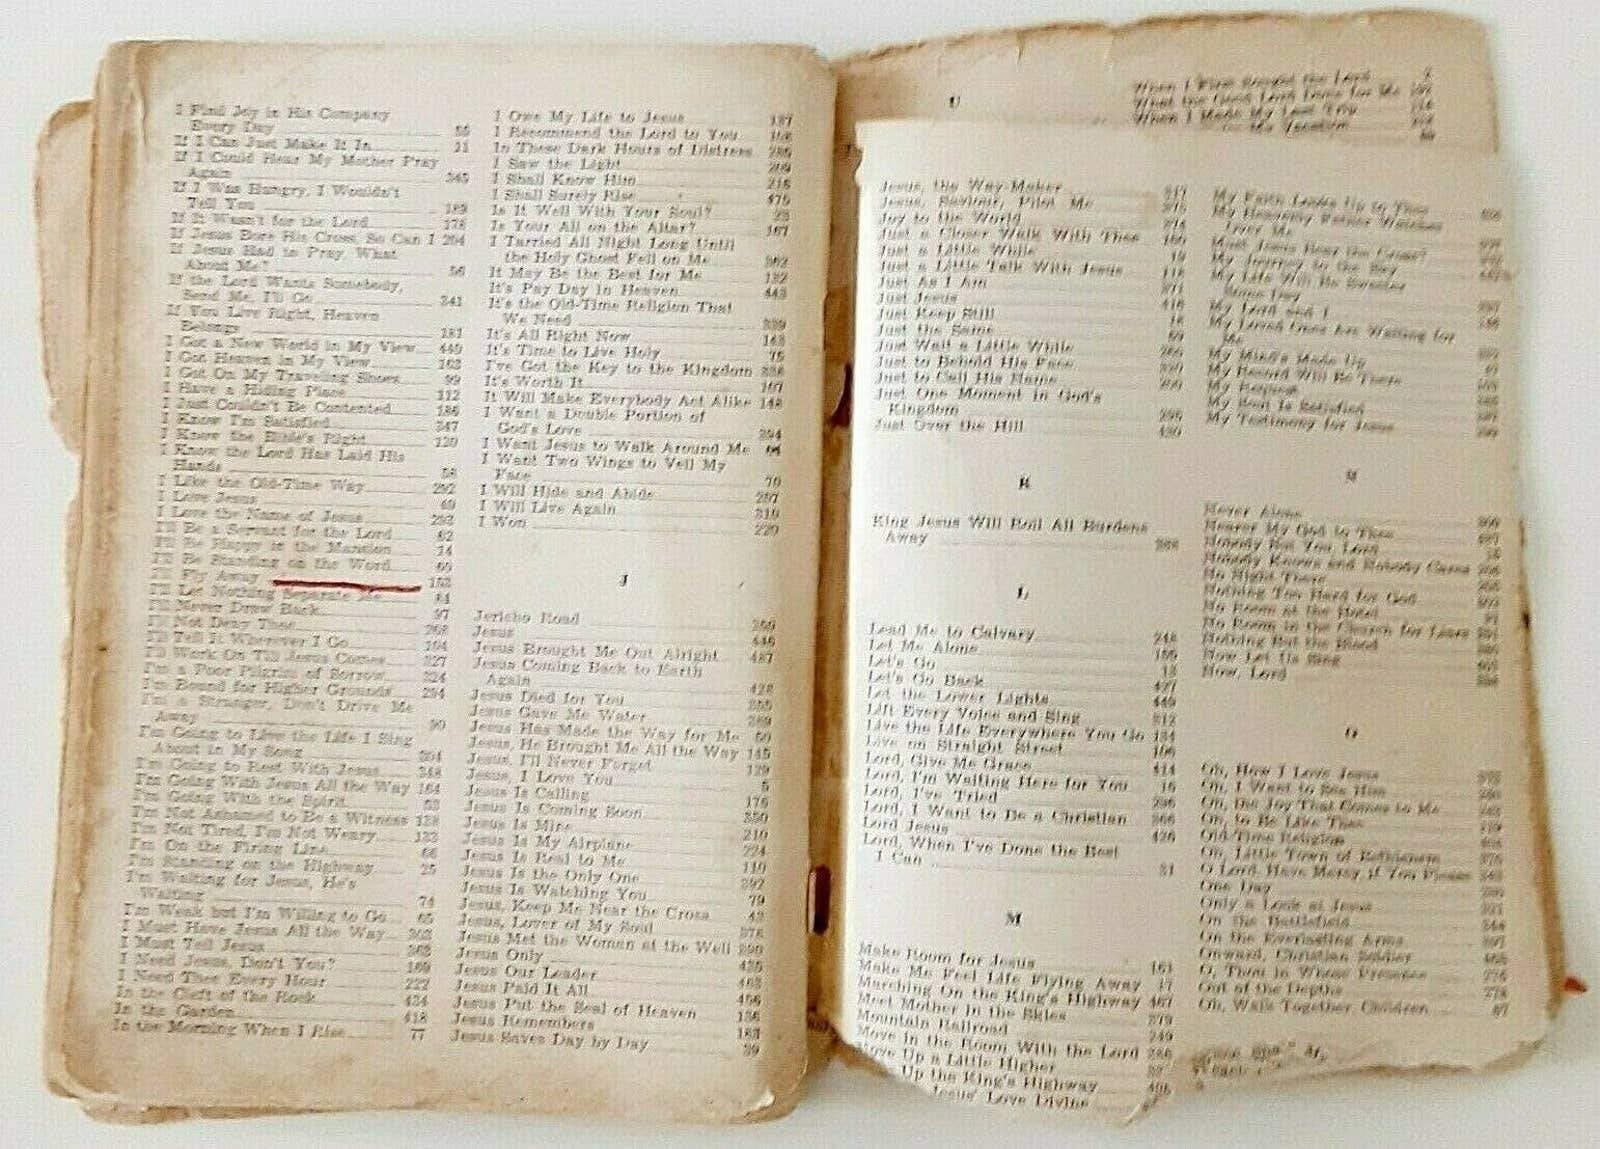 I Find Joy in His Company
Every Day 55
If I Can Just Make It In 11
If I Could Hear My Mother Pray
Again 345
If I Was Hungry, I Wouldn't
Tell You 189
If It Wasn't for the Lord 178
If Jesus Bore His Cross, So Can I 204
If Jesus Had to Pray, What
About Me? 56
If the Lord Wants Somebody,
Send Me, I'll Go 341
If You Live Right, Heaven
Belongs 181
I Got a New World in My View 440
I Got Heaven in My View 163
I Got On My Traveling Shoes 99
I Have a Hiding Place 112
I Just Couldn't Be Contented 186
I Know I'm Satisfied 347
I Know the Bible's Right 120
I Know the Lord Has Laid His
Hands 58
I Like the Old-Time Way 292
I Love Jesus 49
I Love the Name of Jesus 293
I'll Be a Servant for the Lord 82
I'll Be Happy in the Mansion 14
I'll Be Standing on the Word 60
I'll Fly Away 152
I'll Let Nothing Separate Me 84
I'll Never Draw Back 97
I'll Not Deny Thee 268
I'll Tell It Wherever I Go 104
I'll Work On Till Jesus Comes 327
I'm a Poor Pilgrim of Sorrow 324
I'm Bound for Higher Grounds 294
I'm a Stranger, Don't Drive Me
Away 90
I'm Going to Live the Life I Sing
About in My Song 304
I'm Going to Rest With Jesus 348
I'm Going With Jesus All the Way 164
I'm Going With the Spirit 53
I'm Not Ashamed to Be a Witness 128
I'm Not Tired, I'm Not Weary 133
I'm On the Firing Line 66
I'm Standing on the Highway 25
I'm Waiting for Jesus, He's
Waiting 74
I'm Weak but I'm Willing to Go 65
I Must Have Jesus All the Way 303
I Must Tell Jesus 362
I Need Jesus, Don't You? 169
I Need Thee Every Hour 222
In the Cleft of the Rock 434
In the Garden 418
In the Morning When I Rise 77
I Owe My Life to Jesus 187
I Recommend the Lord to You 108
In These Dark Hours of Distress 286
I Saw the Light 209
I Shall Know Him 216
I Shall Surely Rise 475
Is It Well With Your Soul? 23
Is Your All on the Altar? 167
I Tarried All Night Long Until
the Holy Ghost Fell on Me 362
It May Be the Best for Me 132
It's Pay Day in Heaven 443
It's the Old-Time Religion That
We Need 339
It's All Right Now 143
It's Time to Live Holy 75
I've Got the Key to the Kingdom 336
It's Worth It 107
It Will Make Everybody Act Alike 148
I Want a Double Portion of
God's Love 394
I Want Jesus to Walk Around Me 94
I Want Two Wings to Veil My
Face 70
I Will Hide and Abide 297
I Will Live Again 319
I Won 220
J
Jericho Road 359
Jesus 446
Jesus Brought Me Out Alright 487
Jesus Coming Back to Earth
Again 428
Jesus Died for You 355
Jesus Gave Me Water 369
Jesus Has Made the Way for Me 50
Jesus, He Brought Me All the Way 145
Jesus, I'll Never Forget 129
Jesus, I Love You 5
Jesus Is Calling 176
Jesus Is Coming Soon 350
Jesus Is Mine 210
Jesus Is My Airplane 224
Jesus Is Real to Me 110
Jesus Is the Only One 392
Jesus Is Watching You 79
Jesus, Keep Me Near the Cross 43
Jesus, Lover of My Soul 376
Jesus Met the Woman at the Well 290
Jesus Only 435
Jesus Our Leader 463
Jesus Paid It All 456
Jesus Put the Seal of Heaven 136
Jesus Remembers 183
Jesus Saves Day by Day 39
U
When I First Sought the Lord
What the Good Lord Done for Me
When I Made My Last Trip
My Vacation
Jesus, the Way-Maker 317
Jesus, Saviour, Pilot Me 375
Joy to the World 374
Just a Closer Walk With Thee 100
Just a Little While 19
Just a Little Talk With Jesus 118
Just As I Am 371
Just Jesus 416
Just Keep Still 16
Just the Same 69
Just Wait a Little While
Just to Behold His Face
Just to Call His Name
Just One Moment in God's
Kingdom 395
Just Over the Hill 430
K
King Jesus Will Roll All Burdens
Away 388
L
Lead Me to Calvary 248
Let Me Alone 166
Let's Go 13
Let's Go Back 427
Let the Lower Lights 449
Lift Every Voice and Sing 312
Live the Life Everywhere You Go 134
Live on Straight Street 106
Lord, Give Me Grace 414
Lord, I'm Waiting Here for You 15
Lord, I've Tried 296
Lord, I Want to Be a Christian 366
Lord Jesus 426
Lord, When I've Done the Best
I Can 31
M
Make Room for Jesus 161
Make Me Feel Life Flying Away 17
Marching On the King's Highway 467
Meet Mother in the Skies 379
Mountain Railroad 249
Move in the Room With the Lord 286
Move Up a Little Higher
Up the King's Highway
Jesus' Love Divine
My Faith Looks Up to Thee
My Heavenly Father Watches
Over Me
Must Jesus Bear the Cross?
My Journey to the Sky
My Life Will Be Sweeter
Some Day
My Lord and I
My Loved Ones Are Waiting for
Me
My Mind's Made Up
My Record Will Be There
My Request
My Soul Is Satisfied
My Testimony for Jesus
N
Never Alone
Nearer My God to Thee
Nobody But You, Lord
Nobody Knows and Nobody Cares
No Night There
Nothing Too Hard for God
No Room at the Hotel
No Room in the Church for Liars
Nothing But the Blood
Now Let Us Sing
Now, Lord
O
Oh, How I Love Jesus
Oh, I Want to See Him
Oh, the Joy That Comes to Me
Oh, to Be Like Thee
Old-Time Religion
Oh, Little Town of Bethlehem
O Lord, Have Mercy, if You Please
One Day
Only a Look at Jesus
On the Battlefield
On the Everlasting Arms
Onward, Christian Soldier
O, Thou in Whose Presence
Out of the Depths
Oh, Walk Together Children